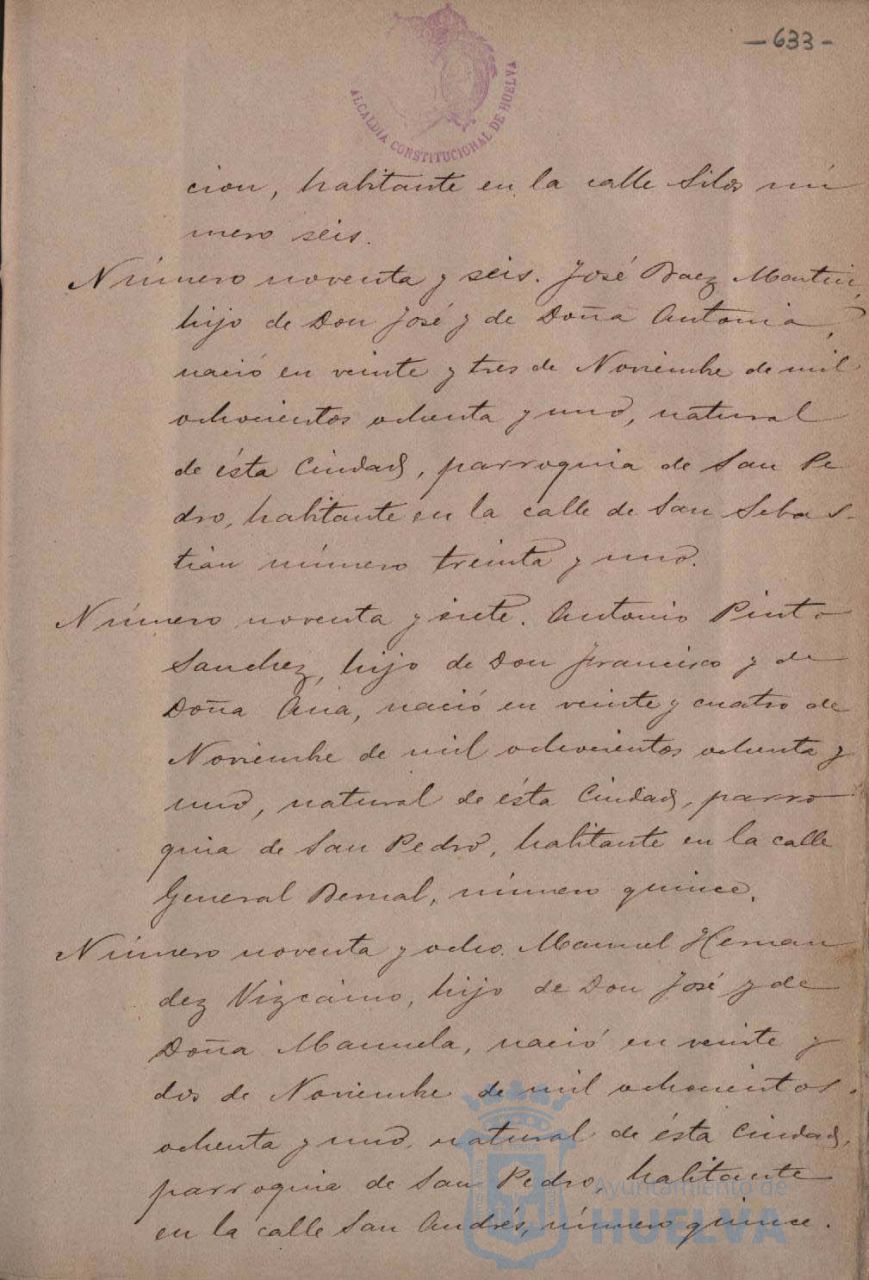 - 633 -
ALCALDIA CONSTITUCIONAL DE HUELVA
cion, habitante en la calle Silos nú
mero seis.
Número noventa y seis. José Baez Martin,
hijo de Don José y de Doña Antonia,
nació en veinte y tres de Noviembre de mil
ochocientos ochenta y uno, natural
de ésta Ciudad, parroquia de San Pe
dro, habitante en la calle de San Sebas-
tián número treinta y uno.
Número noventa y siete. Antonio Pinto
Sanchez, hijo de Don Francisco y de
Doña Ana, nació en veinte y cuatro de
Noviembre de mil ochocientos ochenta y
uno, natural de ésta Ciudad, parro
quia de San Pedro, habitante en la calle
General Bernal, número quince.
Número noventa y ocho. Manuel Hernan
dez Vizcaino, hijo de Don José y de
Doña Manuela, nació en veinte y
dos de Noviembre de mil ochocientos
ochenta y uno, natural de ésta Ciudad,
parroquia de San Pedro, habitante
en la calle San Andrés, número quince.
Ayuntamiento de
HUELVA